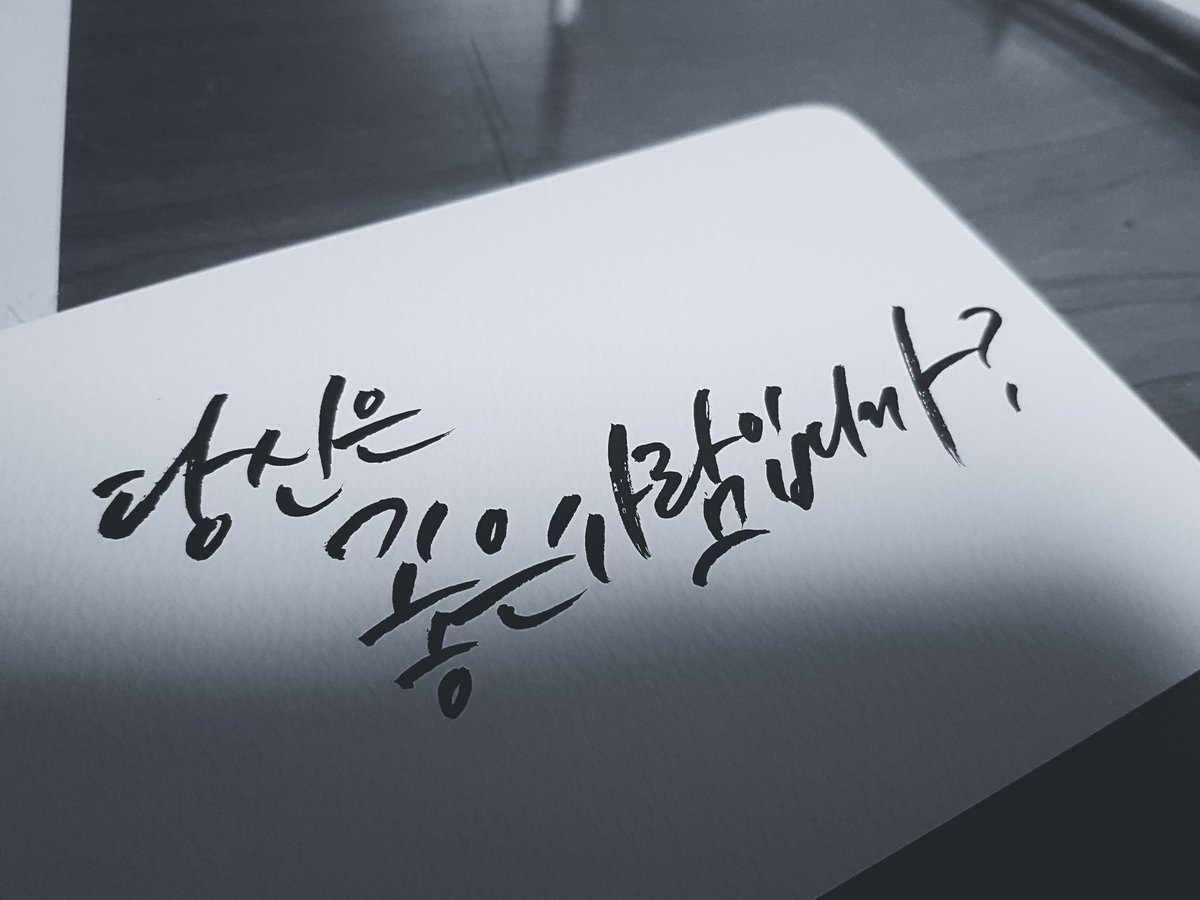 당신은
좋은사람입니까?